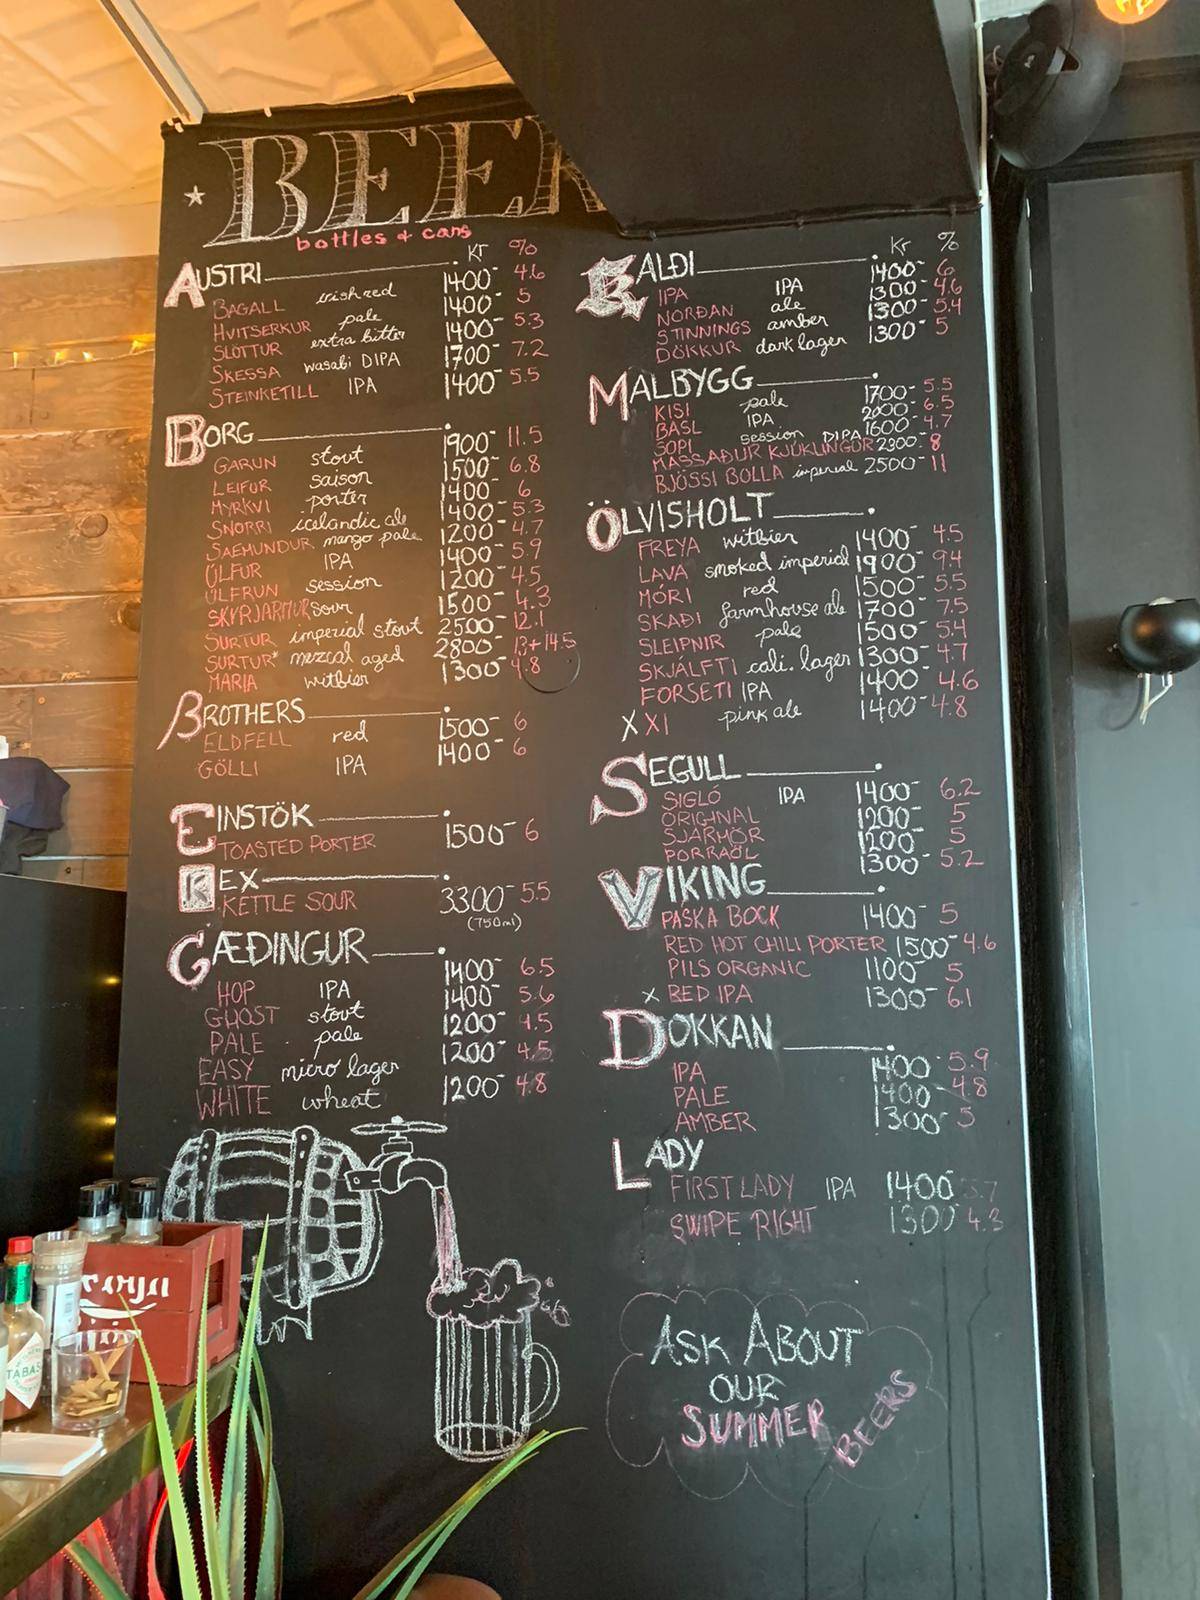 BEER
bottles & cans
Kr %
AUSTRI
BAGALL irish red 1400- 4.6
HVITSERKUR pale 1400- 5
SLÖTTUR extra bitter 1400- 5.3
SKESSA wasabi DIPA 1700- 7.2
STEINKETILL IPA 1400- 5.5
BORG
GARUN stout 1900- 11.5
LEIFUR saison 1500- 6.8
MYRKVI porter 1400- 6
SNORRI icelandic ale 1400- 5.3
SAEMUNDUR mango pale 1200- 4.7
ÚLFUR IPA 1400- 5.9
ÚLFRUN session 1200- 4.5
SKYRJARMUR sour 1500- 4.3
SURTUR imperial stout 2500- 12.1
SURTUR* mezcal aged 2800- 13+14.5
MARIA witbier 1300- 4.8
BROTHERS
ELDFELL red 1500- 6
GÖLLI IPA 1400- 6
EINSTÖK
TOASTED PORTER 1500- 6
KEX
KETTLE SOUR 3300- 5.5
(750ml)
GÆÐINGUR
HOP IPA 1400- 6.5
GHOST stout 1400- 5.6
PALE pale 1200- 4.5
EASY micro lager 1200- 4.5
WHITE wheat 1200- 4.8
Kr %
KALDI
IPA IPA 1400- 6
NORÐAN ale 1300- 4.6
STINNINGS amber 1300- 5.4
DÖKKUR dark lager 1300- 5
MALBYGG
KISI pale 1700- 5.5
BASL IPA 2000- 6.5
SOPI session 1600- 4.7
MASSAÐUR KJÚKLINGUR DIPA 2300- 8
BJÖSSI BOLLA imperial 2500- 11
ÖLVISHOLT
FREYA witbier 1400- 4.5
LAVA smoked imperial 1900- 9.4
MÓRI red 1500- 5.5
SKAÐI farmhouse ale 1700- 7.5
SLEIPNIR pale 1500- 5.4
SKJÁLFTI cali. lager 1300- 4.7
FORSETI IPA 1400- 4.6
X XI pink ale 1400- 4.8
SEGULL
SIGLÓ IPA 1400- 6.2
ORIGINAL 1200- 5
SJARMÖR 1200- 5
PORRAÖL 1300- 5.2
VIKING
PASKA BOCK 1400- 5
RED HOT CHILI PORTER 1500- 4.6
PILS ORGANIC 1100- 5
X BED IPA 1300- 6.1
DOKKAN
IPA 1400- 5.9
PALE 1400- 4.8
AMBER 1300- 5
LADY
FIRST LADY IPA 1400 5.7
SWIPE RIGHT 1300- 4.3
ASK ABOUT
OUR
SUMMER BEERS
TABAS